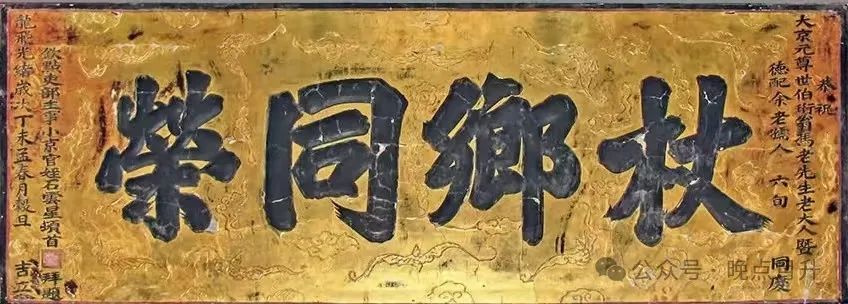 恭祝
大京元尊世伯衍翁馮老先生老大人暨
德配余老孺人六旬
同慶
杖鄉同榮
欽點吏部主事小京官姪石雲星頓首
拜題
龍飛光緒歲次丁未孟春月穀旦
吉立
公众号·晚点高升